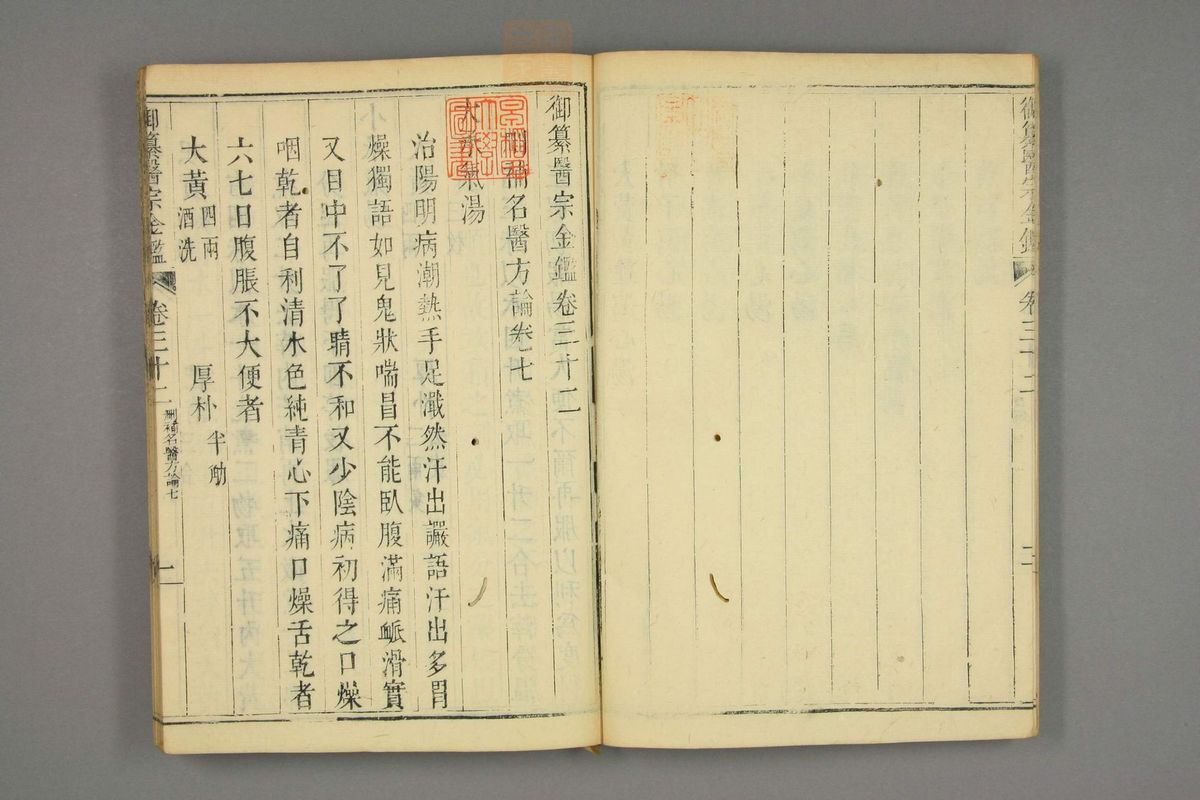 御纂醫宗金鑑卷三十二
刪補名醫方論卷七
大承氣湯
治陽明病潮熱手足濈然汗出讝語汗出多胃
燥獨語如見鬼狀喘冒不能臥腹滿痛脈滑實
又目中不了了睛不和又少陰病初得之口燥
咽乾者自利清水色純青心下痛口燥舌乾者
六七日腹脹不大便者
大黃 四兩 酒洗 厚朴 半觔
御纂醫宗金鑑 卷三十二 刪補名醫方論七 一